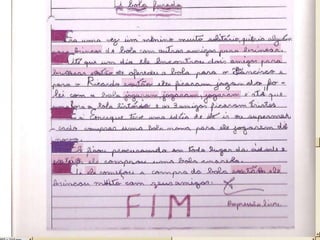 A bola furada
Era uma vez um menino muito solitário queria alguém
para brincar de bola com outros amigos para brincar.
Até que um dia ele encontrou dois amigos para
brincar então ele ofereceu a bola para o Francisco e
para o Ricardo então eles ficaram jogando foi e
lei com a bola jogaram, jogaram, jogaram e até que
a bola e os 3 amigos ficaram tristes.
teve uma idéia de ir ao supermer
cado comprar uma bola nova para ele jogarem de
novo.
ficou procurando em todo lugar da cidade e
então ele comprou uma bola amarela.
a compra da bola então ele
brincou muito com seus amigos.
FIM
Expressão livre